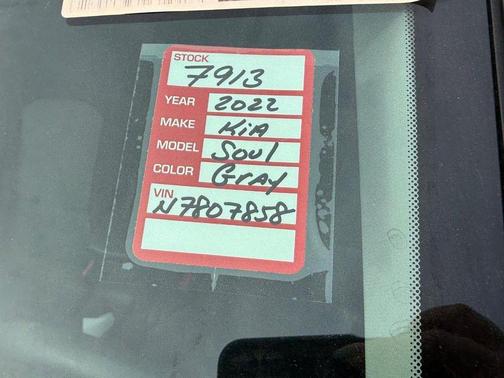 STOCK
7913
YEAR 2022
MAKE KiA
MODEL Soul
COLOR GRAy
VIN
N7807858